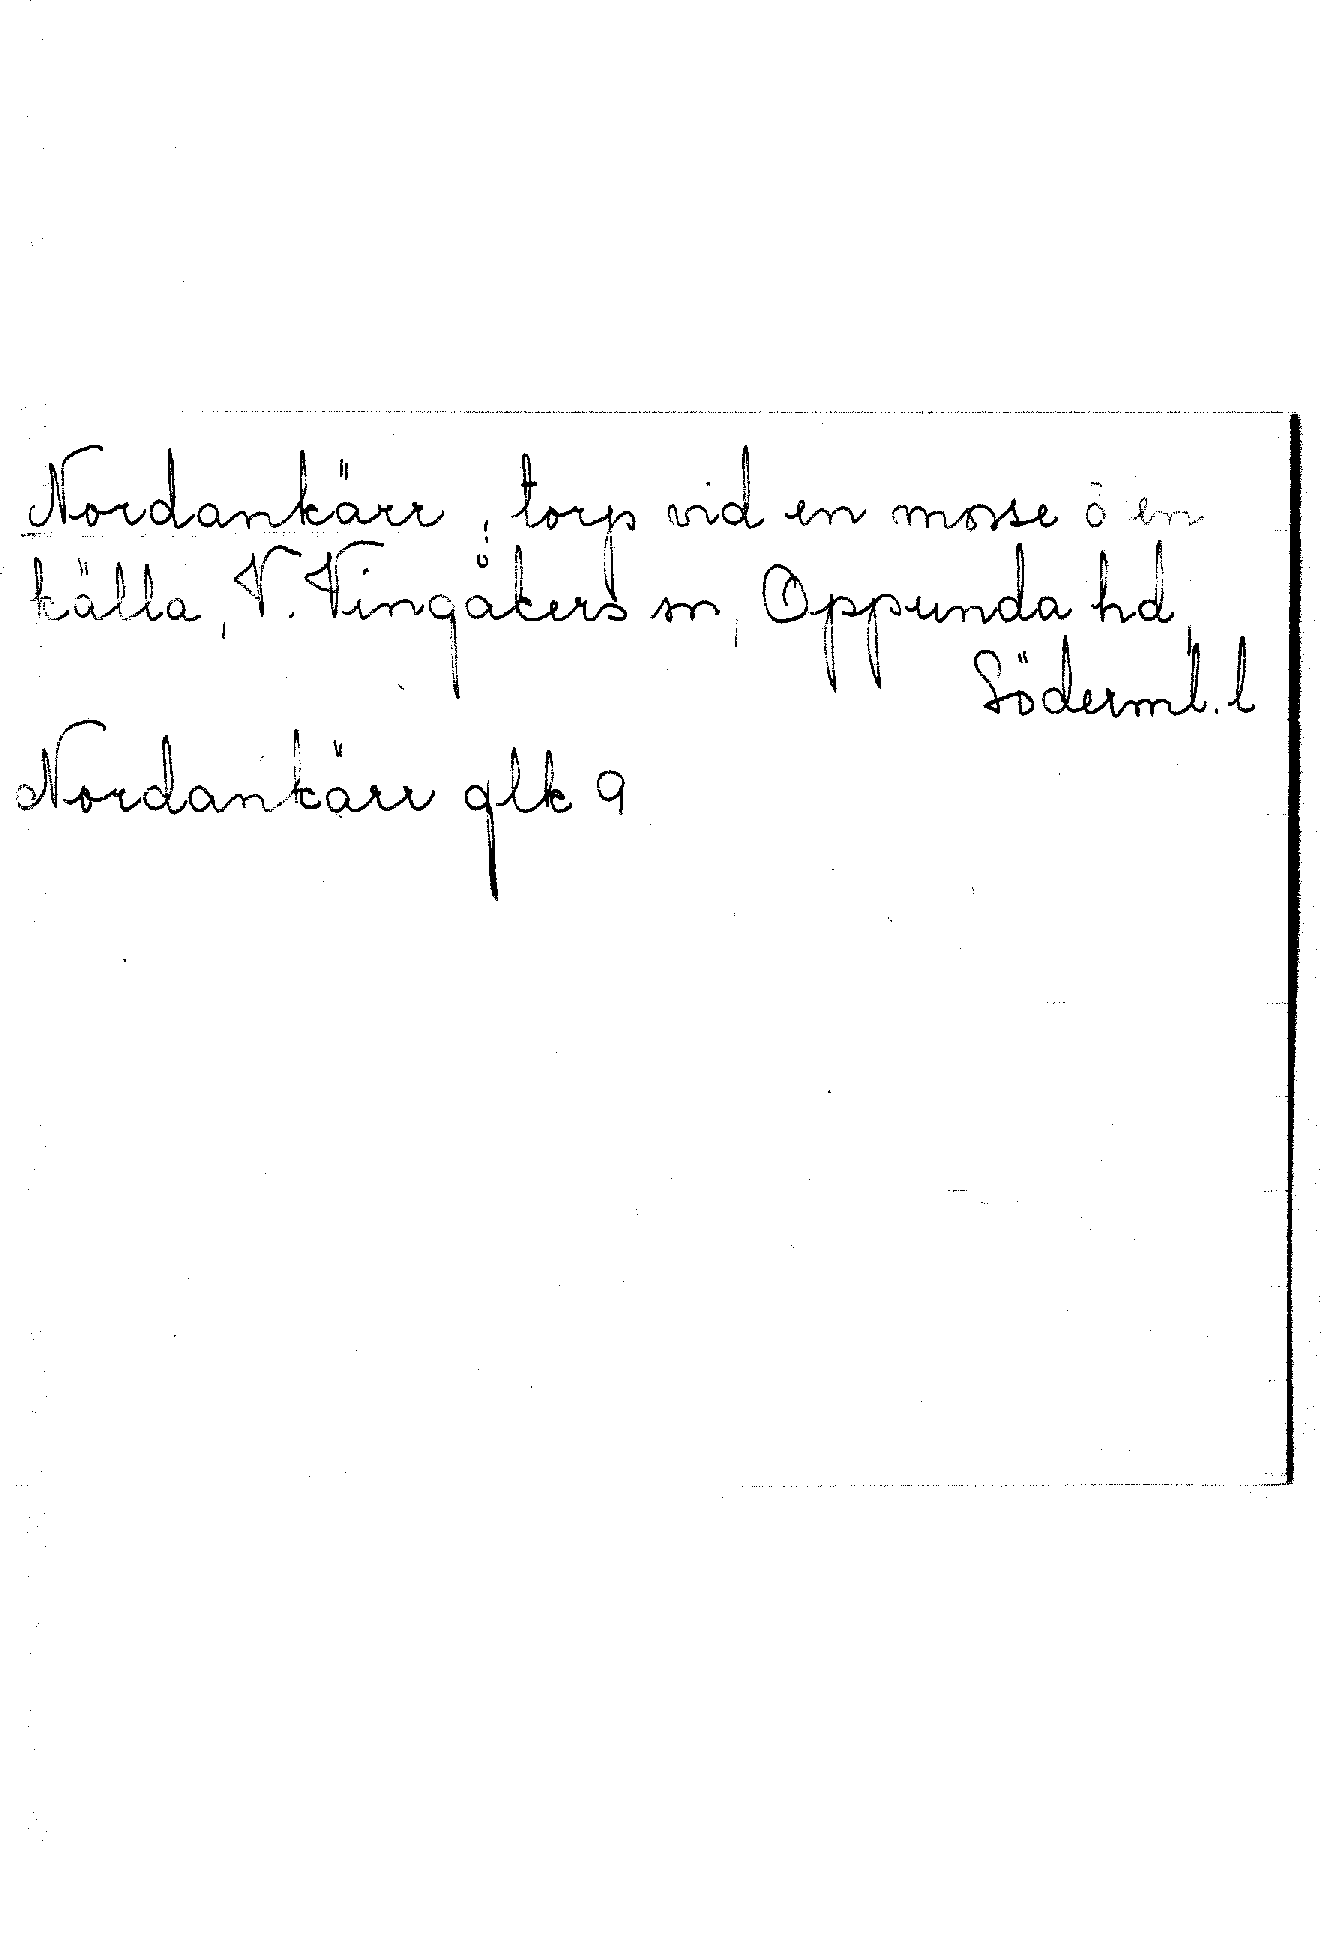 Nordankärr, torp vid en mosse o en
källa, V. Vingåkers sn, Oppunda hd,
Söderml. l
Nordankärr glk 9